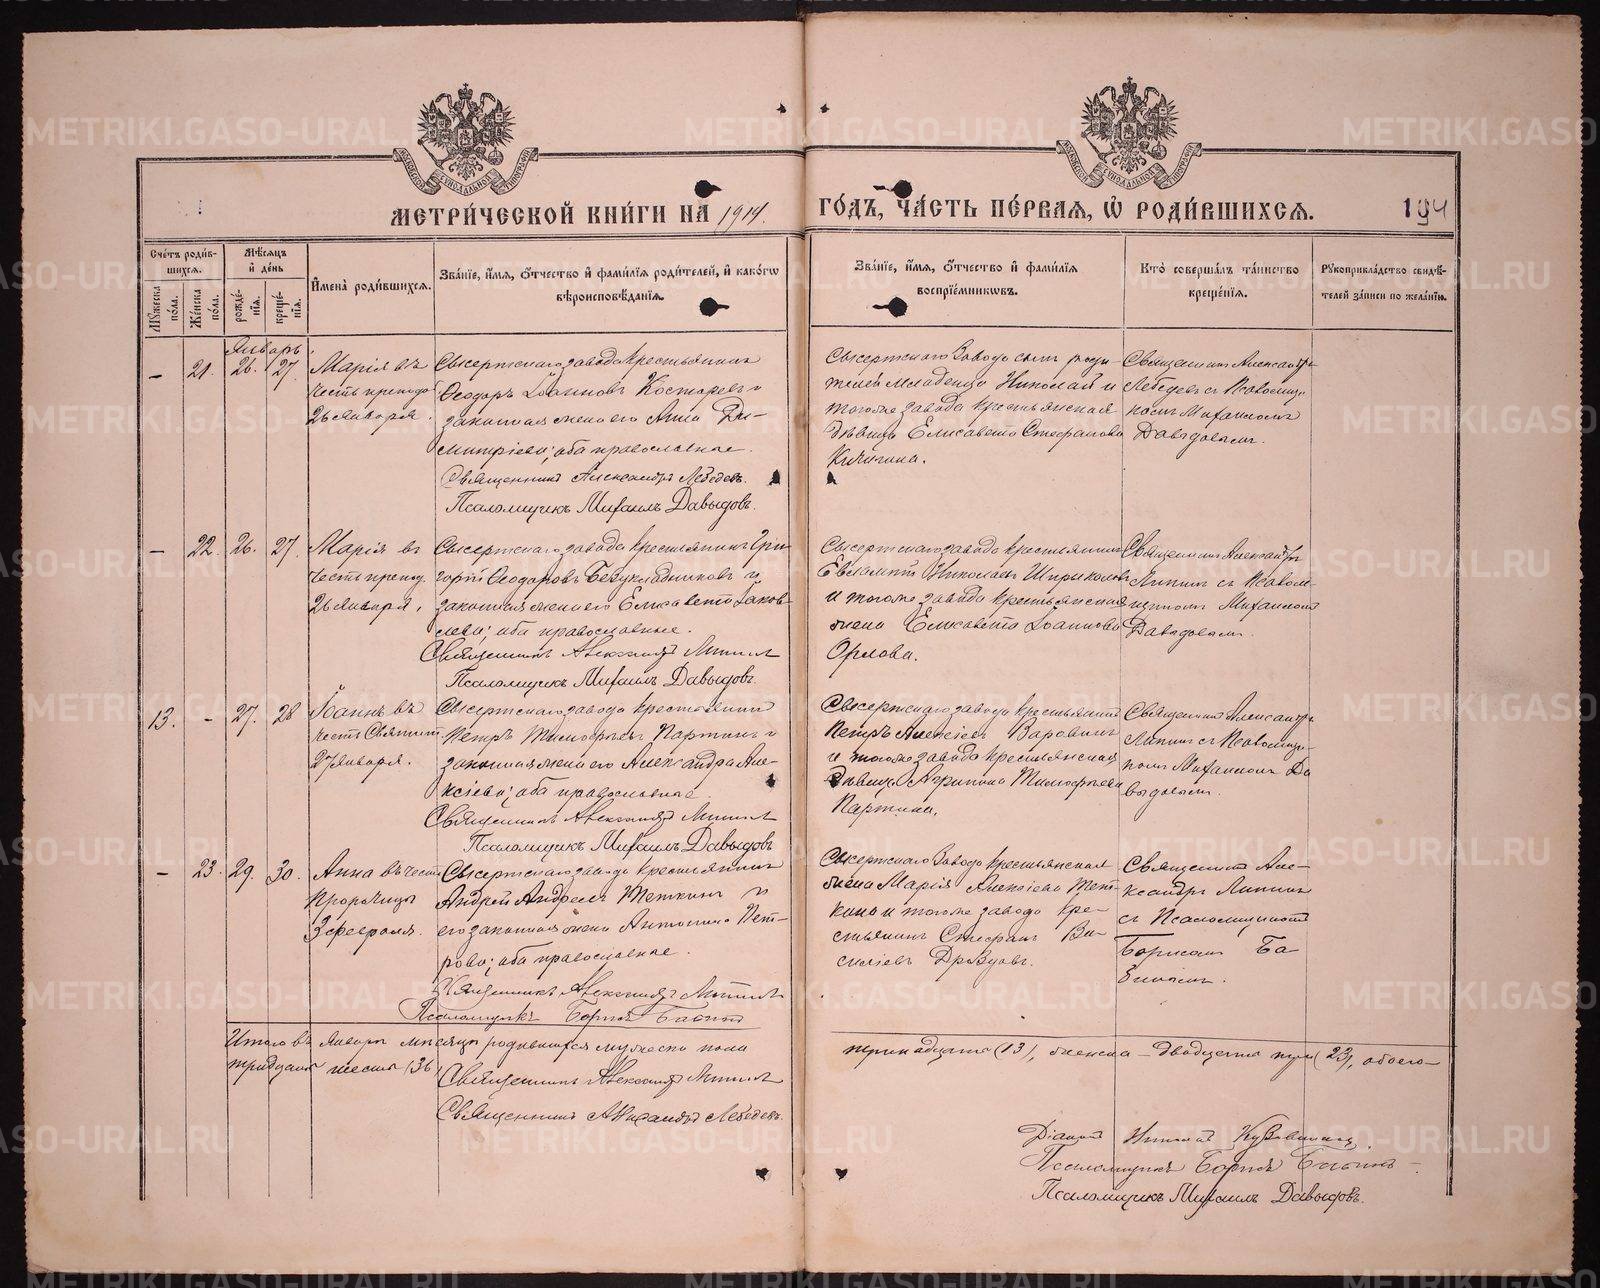 МЕТРИ́ЧЕСКОЙ КНИ́ГИ НА 1914.
ГО́ДЪ, ЧА́СТЬ ПЕ́РВАЯ, Ѡ РОДИ́ВШИХСЯ.
194
Сче́тъ роди́вшихся.
Му́жеска по́ла.
Же́нска по́ла.
Мѣ́сяцъ и де́нь
рожде́нія.
креще́нія.
Имена̀ роди́вшихся.
Зва́ніе, и́мя, о́тчество и фами́лія роди́телей, и како́гѡ
вѣроисповѣ́данія.
Зва́ніе, и́мя, о́тчество и фами́лія
воспріе́мникѡвъ.
Кто̀ соверша́лъ та́инство
креще́нія.
Рукоприкла́дство свидѣ́-
телей за́писи по жела́нію.
Январь.
– 21. 26. 27.
Марія въ
честь препод.
26 Января.
Сысертскаго завода крестьянинъ
Ѳеодоръ Іоанновъ Костаревъ и
законная жена его Анна Ди-
митріева; оба православные.
Священникъ Александръ Лебедевъ.
Псаломщикъ Михаилъ Давыдовъ.
Сысертскаго Завода сынъ роди
телей младенца Николай и
тогоже завода крестьянская
дѣвица Елисавета Стефанова
Кичигина.
Священникъ Александръ
Лебедевъ съ Псаломщи
комъ Михаиломъ
Давыдовымъ.
– 22. 26. 27.
Марія въ
честь препод.
26 Января.
Сысертскаго завода крестьянинъ Гри-
горій Ѳеодоровъ Безукладниковъ и
законная жена его Елисавета Іаков-
лева; оба православные.
Священникъ Александръ
Псаломщикъ Михаилъ Давыдовъ.
Сысертскаго завода крестьянинъ
Евлампій Николаевъ
и тогоже завода крестьянская
жена Елисавета Іоаннова
Орлова.
Священникъ Александръ
съ Псалом-
щикомъ Михаиломъ
Давыдовымъ.
13. – 27. 28
Іоаннъ въ
честь Святит.
27 Января.
Сысертскаго завода крестьянинъ
Петръ Тимофеевъ Партинъ и
законная жена его Александра Але-
ксіева; оба православные.
Священникъ Александръ
Псаломщикъ Михаилъ Давыдовъ
Сысертскаго завода крестьянинъ
Петръ Алексіевъ
и тогоже завода крестьянская
дѣвица Тимофеева
Партина.
Священникъ Александръ
съ Псаломщи-
комъ Михаиломъ Да
выдовымъ.
– 23. 29. 30.
Анна въ честь
Пророчицы
3 февраля.
Сысертскаго завода крестьянинъ
Андрей Андреевъ Теткинъ и
его законная жена Антонина Пет-
рова; оба православные.
Священникъ Александръ
Псаломщикъ Борисъ
Сысертскаго Завода крестьянская
жена Марія Алексіева Тет-
кина и тогоже завода кре-
стьянинъ Стефанъ Ва-
силіевъ
Священникъ Але-
ксандръ
съ Псаломщикомъ
Борисомъ
Итого въ Январѣ мѣсяцѣ родившихся мужеска пола
тринадцать (13), женска – двадцать три (23), обоего–
тридцать шесть (36)
Священникъ Александръ
Священникъ Александръ Лебедевъ.
Діаконъ
Псаломщикъ Борисъ
Псаломщикъ Михаилъ Давыдовъ.
METRIKI.GASO-URAL.RU